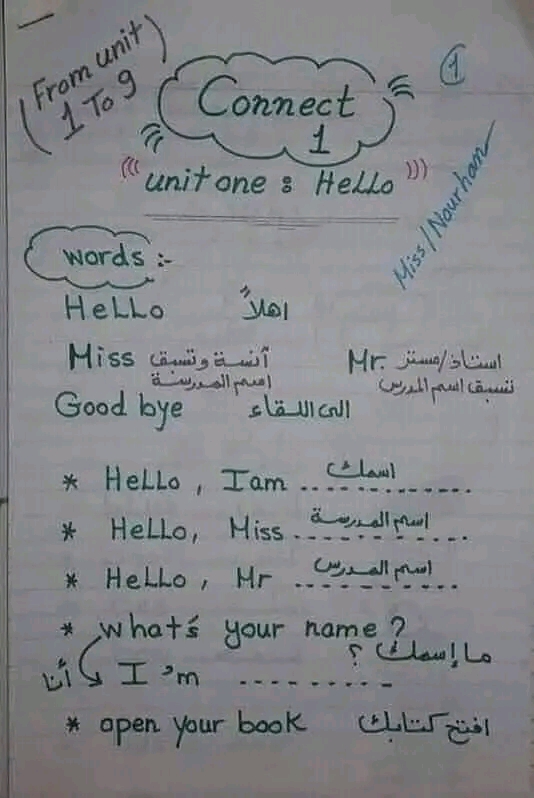 (From unit
1 To 9)
1
Connect
1
Miss/Nourhan
((( unit one : Hello )))
words :-
Hello اهلاً
Miss آنسة وتسبق اسم المدرسة
Mr. استاذ/مستر تسبق اسم المدرس
Good bye الى اللقاء
* Hello , I am ........... اسمك
* Hello, Miss ........... اسم المدرسة
* Hello , Mr ........... اسم المدرس
* what's your name ?
ما إسمك ؟
أنا I'm ..........
* open your book افتح كتابك